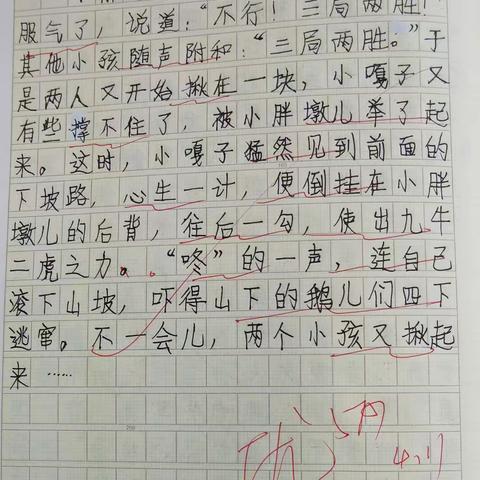 服气了，说道："不行！三局两胜！"
其他小孩随声附和："三局两胜。"于
是两人又开始揪在一块，小嘎子又
有些撑不住了，被小胖墩儿举了起
来。这时，小嘎子猛然见到前面的
下坡路，心生一计，便倒挂在小胖
墩儿的后背，往后一勾，使出九牛
二虎之力。"咚"的一声，连自己
滚下山坡，吓得山下的鹅儿们四下
逃窜。不一会儿，两个小孩又揪起
来……
优
4.11